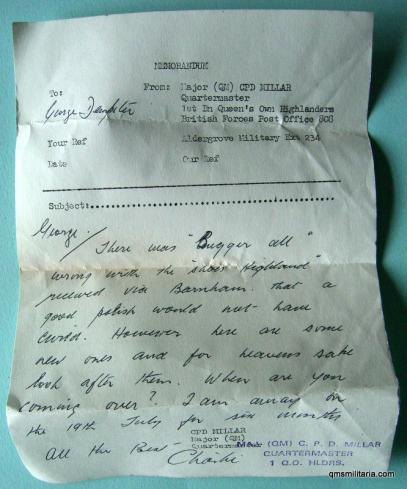 MEMORANDUM
To: From: Major (QM) CPD MILLAR
George Dempster Quartermaster
1st Bn Queen's Own Highlanders
British Forces Post Office 808
Your Ref Aldergrove Military Ext 234
Date Our Ref
Subject:
George /
There was "Bugger all"
wrong with the "shoes Highland"
received via Barnham that a
good polish would not have
cured. However here are some
new ones and for heavens sake
look after them. When are you
coming over? I am away on
the 19th July for six months
All the Best
CPD MILLAR
Major (QM)
Quartermaster
Charlie
MAJ (QM) C. P. D. MILLAR
QUARTERMASTER
1 Q.O. HLDRS.
qmsmilitaria.com